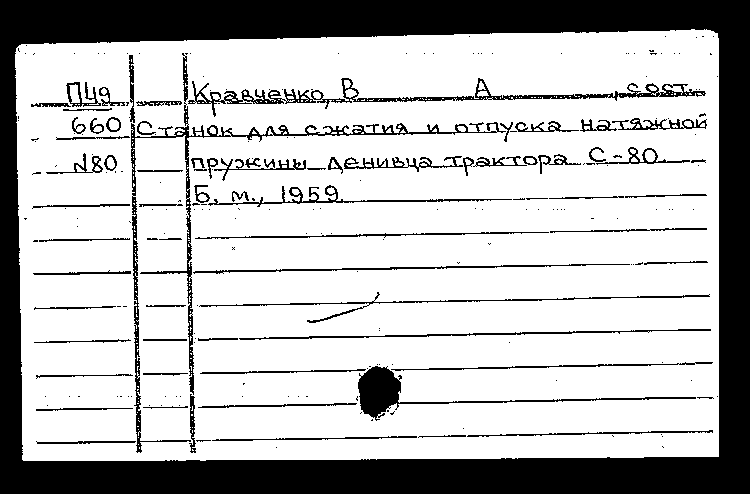 ПЦ9 Кравченко, В А , сост.
660 Станок для сжатия и отпуска натяжной
N80 пружины ленивца трактора С-80.
Б. м., 1959.